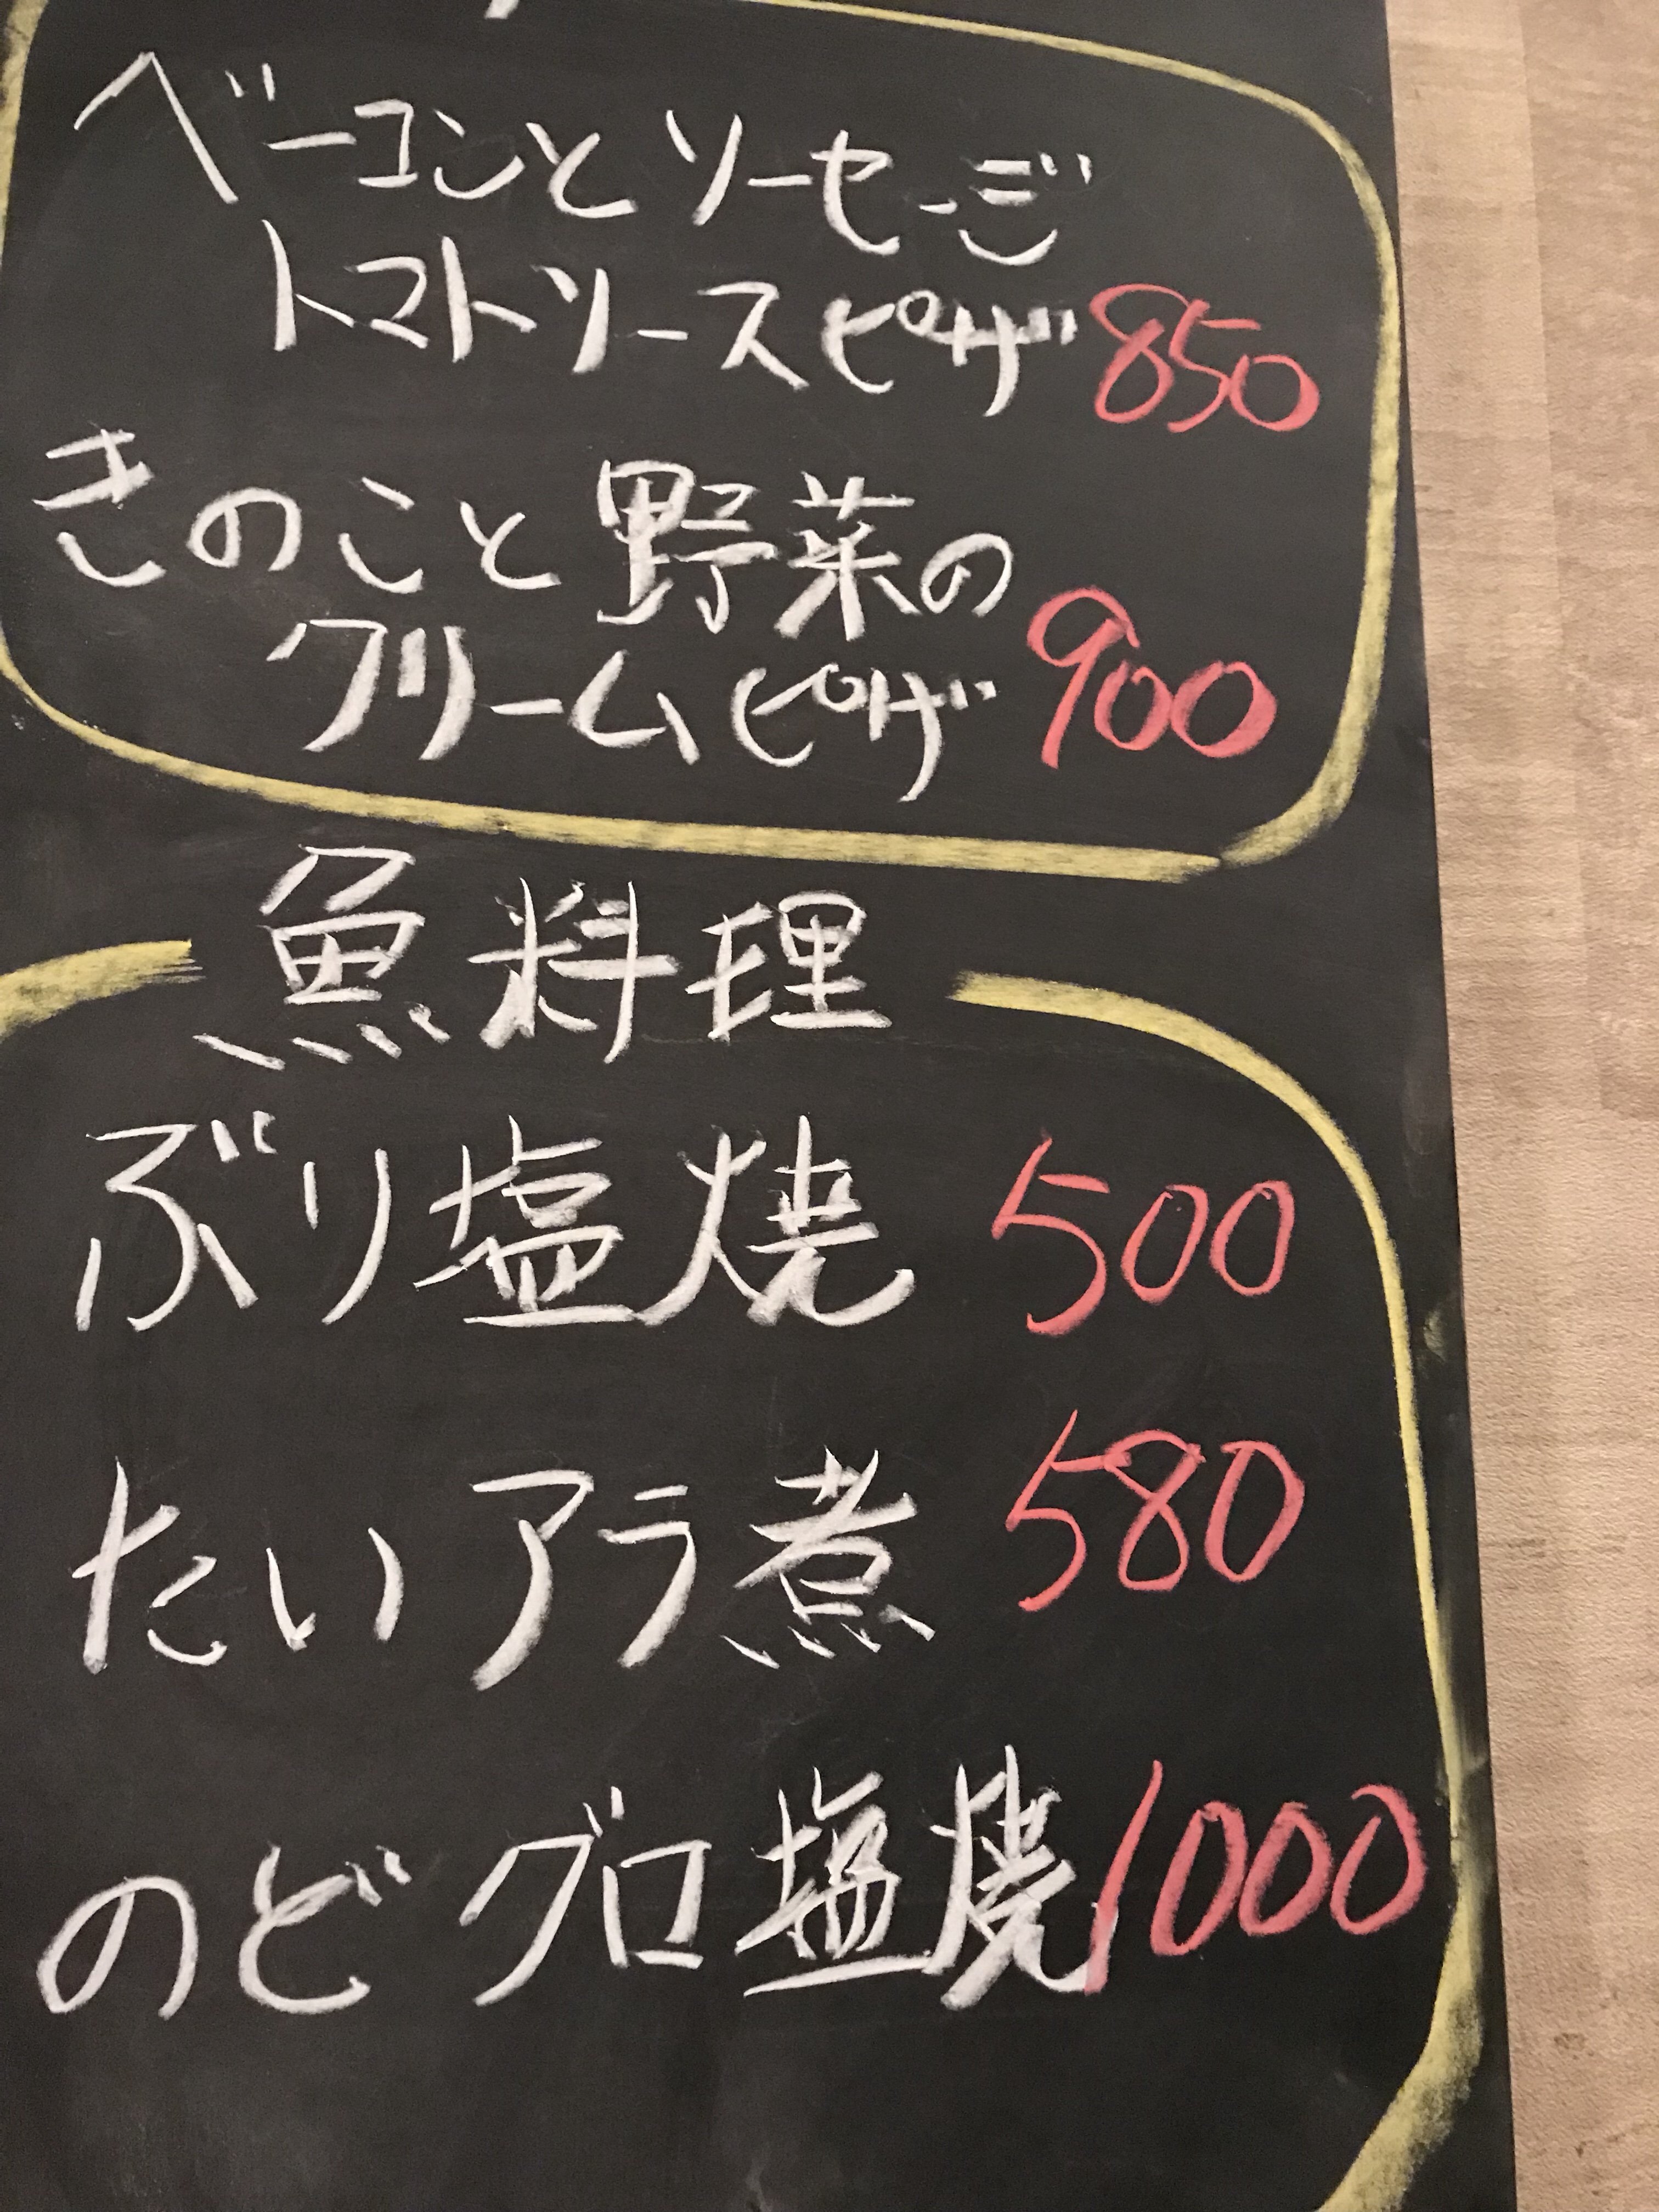 ベーコンとソーセージ
トマトソースピザ 850
きのこと野菜の
クリームピザ 900
魚料理
ぶり塩焼 500
たいアラ煮 580
のどグロ塩焼 1000